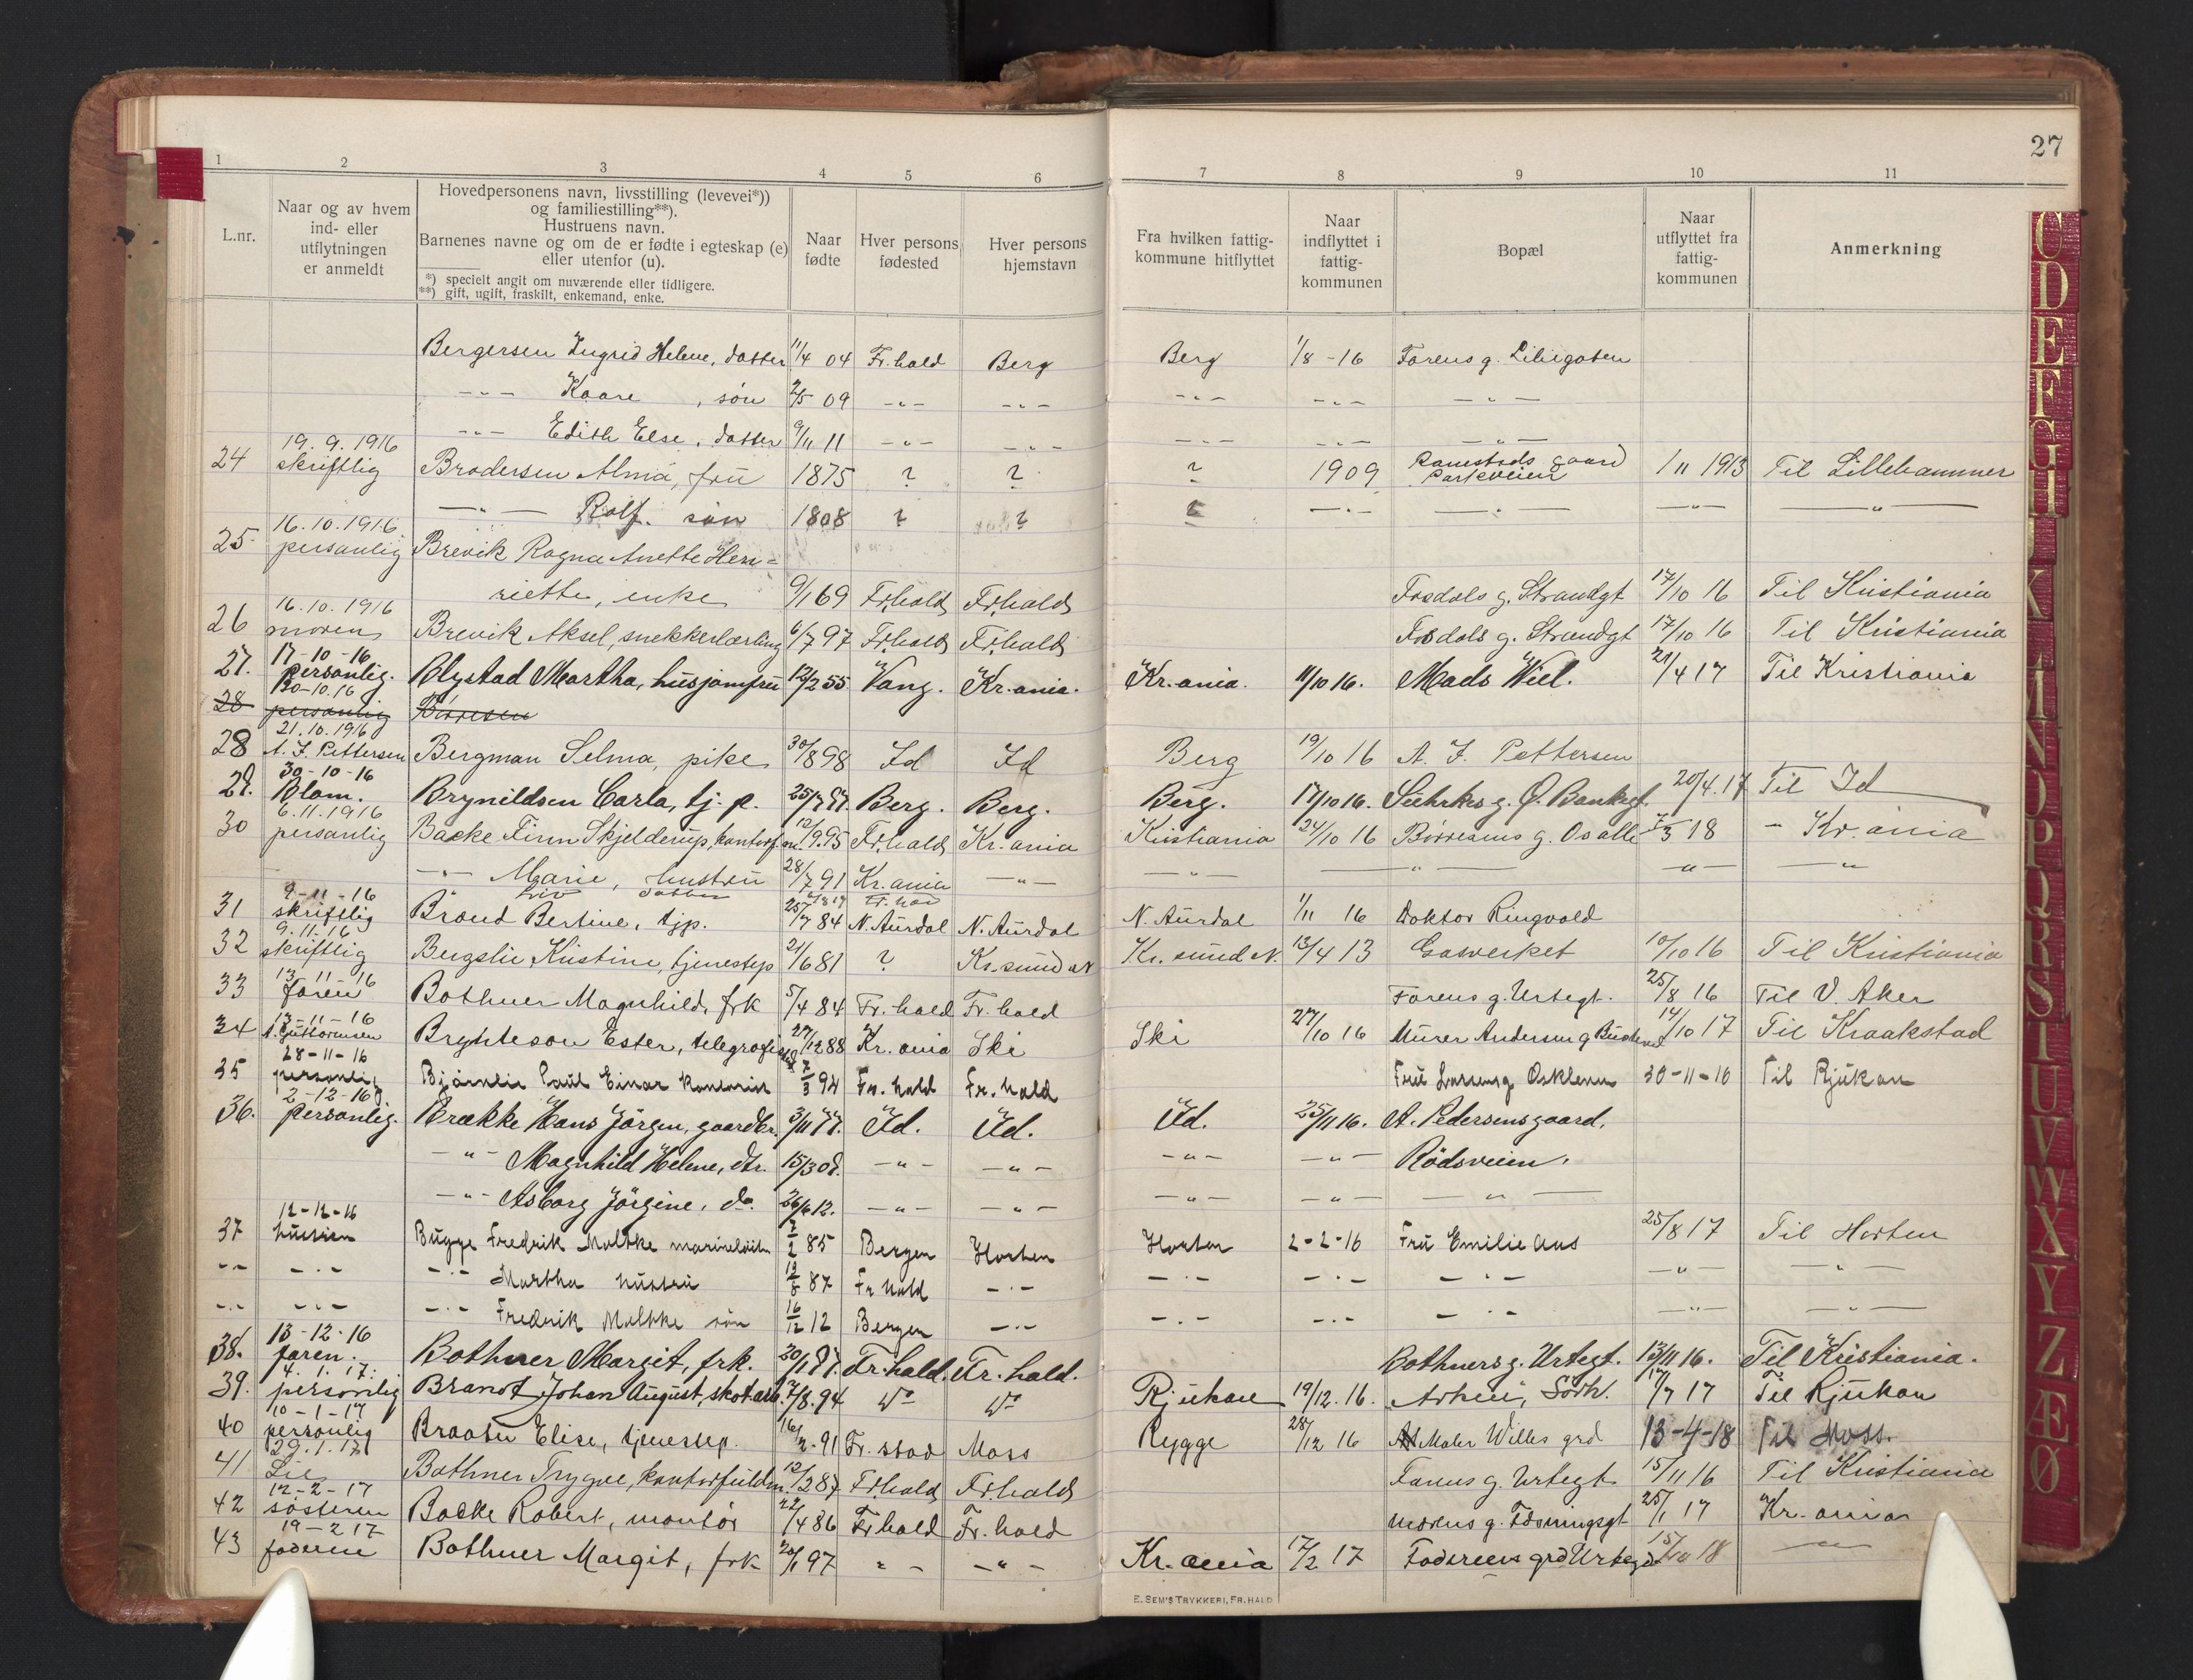 27
1 2 3 4 5 6 7 8 9 10 11
L.nr.
Naar og av hvem
ind- eller
utflytningen
er anmeldt
Hovedpersonens navn, livsstilling (levevei*))
og familiestilling**).
Hustruens navn.
Barnenes navne og om de er fødte i egteskap (e)
eller utenfor (u).
*) specielt angit om nuværende eller tidligere.
**) gift, ugift, fraskilt, enkemand, enke.
Naar
fødte
Hver persons
fødested
Hver persons
hjemstavn
Fra hvilken fattig-
kommune hitflyttet
Naar
indflyttet i
fattig-
kommunen
Bopæl
Naar
utflyttet fra
fattig-
kommunen
Anmerkning
Bergersen Ingrid Helene, datter 11/4 04 Fr.hald Berg Berg 1/8 -16 Farens g.
-"- Kaare, søn 2/5 09 -"- -"- -"- -"- -"-
-"- Edith Else, datter 9/11 11 -"- -"- -"- -"- -"-
19.9.1916
24 skriftlig Brodersen Alma, fru 1875 ? ? ? 1909 gaard Parkveien 1/11 1913 Til Lillehammer
-"- Rolf. søn 1808 ? ? -"- -"- -"- -"-
16.10.1916
25 personlig Brevik Ragna Anette Hen=
riette, enke 9/1 69 Fr.hald Fr.hald Fosdals g. Strandgt 17/10 16 Til Kristiania
16.10.1916
26 moren Brevik Aksel, snekkerlærling 6/7 97 Fr.hald Fr.hald Fosdals g. Strandgt 17/10 16 Til Kristiania
17-10-16
27. personlig. Blystad Martha, husjomfru 12/2 55 Vang. Kr.ania. Kr.ania. 11/10 16. Mads Wiel. 21/4 17 Til Kristiania
20-10.16
28 personlig Børresen
21.10.1916
28 A. F. Pettersen Bergman Selma, pike 30/8 98 Id Id Berg 19/10 16 A. F. Pettersen
30-10-16
29. Blom. Brynildsen Carla, tj. p. 25/7 97. Berg. Berg. Berg. 17/10 16. g. Ø. Bankgt. 20/4.17 Til Id
6.11.1916
30 personlig Backe Finn Skjelderup, kontorf.m. 12/9.95 Fr.hald Kr.ania Kristiania 24/10 16 Børresens g. Os alle 7/3 18 - Kr.ania
-"- Marie, hustru 28/7 91 Kr.ania -"- -"- -"- -"- -"-
Liv datter
9-11-16
31 skriftlig Braud Bertine, tjp. 25/7 84 N. Aurdal N. Aurdal N. Aurdal 1/11 16 Doktor Ringvold
9.11.16
32 skriftlig Bergslie Kristine, tjenestep 21/6 81 ? Kr.sund N Kr. sund N. 13/4 13 Gasverket 10/10 16 Til Kristiania
13-11-16
33 Faren Bothner Magnhild, frk 5/4 84 Fr.hald Fr.hald Farens g. Urtegt. 25/8 16 Til V. Aker
13-11-16
34 A. Guttormsen Brynteson Ester, telegrafist 27/12 88 Kr.ania Ski Ski 27/10 16 Murer Andersen g 14/10 17 Til Kraakstad
28-11-16
35 personlig Bjørnlie Paul Einar kontorist 7/3 94 Fr.hald Fr.hald Fru Larsens g Osklevn 30-11-16 Til Rjukan
2-12-16
36. personlig. Brække Hans Jörgen, gaardbr. 3/11 77. Id. Id. Id. 25/11 16. A. Pedersens gaard.
-"- Magnhild Helene, dtr. 15/3 08. -"- -"- -"- -"- Rödsveien.
-"- Asborg Jörgine, do. 26/6 12. -"- -"- -"- -"- -"-
12-12-16
37 hustru Bugge Fredrik Moltke 2/2 85 Bergen Horten Horten 2-2-16 Fru Emilie Aas 25/8 17 Til Horten
-"- -"- -"- Martha hustru 87 Fr hald -"- -"- -"- -"- -"- -"-
-"- -"- -"- Fredrik Moltke søn 16/12 12 Bergen -"- -"- -"- -"- -"- -"-
13-12-16
38. faren. Bothner Margit, frk. 20/1 97. Fr.hald. Fr.hald. Bothners g. Urtegt. 13/11 16. Til Kristiania.
4.1.17.
39. personlig Brandt Johan August, skotarb. 7/8.94 do do Rjukan 19/12.16. Sørh. 17/7 17 Til Rjukan
10-1-17
40 personlig Braaten Elise, tjenestep. 16/2-91 Fr.stad Moss Rygge 28/12 16 Maler Willes grd 13-4-18 Til Moss.
29.1.17
41 Lie Bothner Trygve, kontorfuldm. 12/2 87 Fr.hald Fr.hald Farens g. Urtegt 15/11 16 Til Kristiania
12-2-17
42 søsteren Backe Robert, montør 22/4 86 Fr.hald Fr.hald Morens g. Fæstningsgt 25/1 17 Kr.ania
19-2 17
43 faderen Bothner Margit, frk 20/1 97 -"- -"- Kr.ania 17/2 17 Faderens grd Urtegt 15/10 18 -"-
E. SEM'S TRYKKERI, FR.HALD
C
D
E
F
G
H
J
K
L
M
N
O
P
Q
R
S
T
U
V
W
X
Y
Z
Æ
Ø